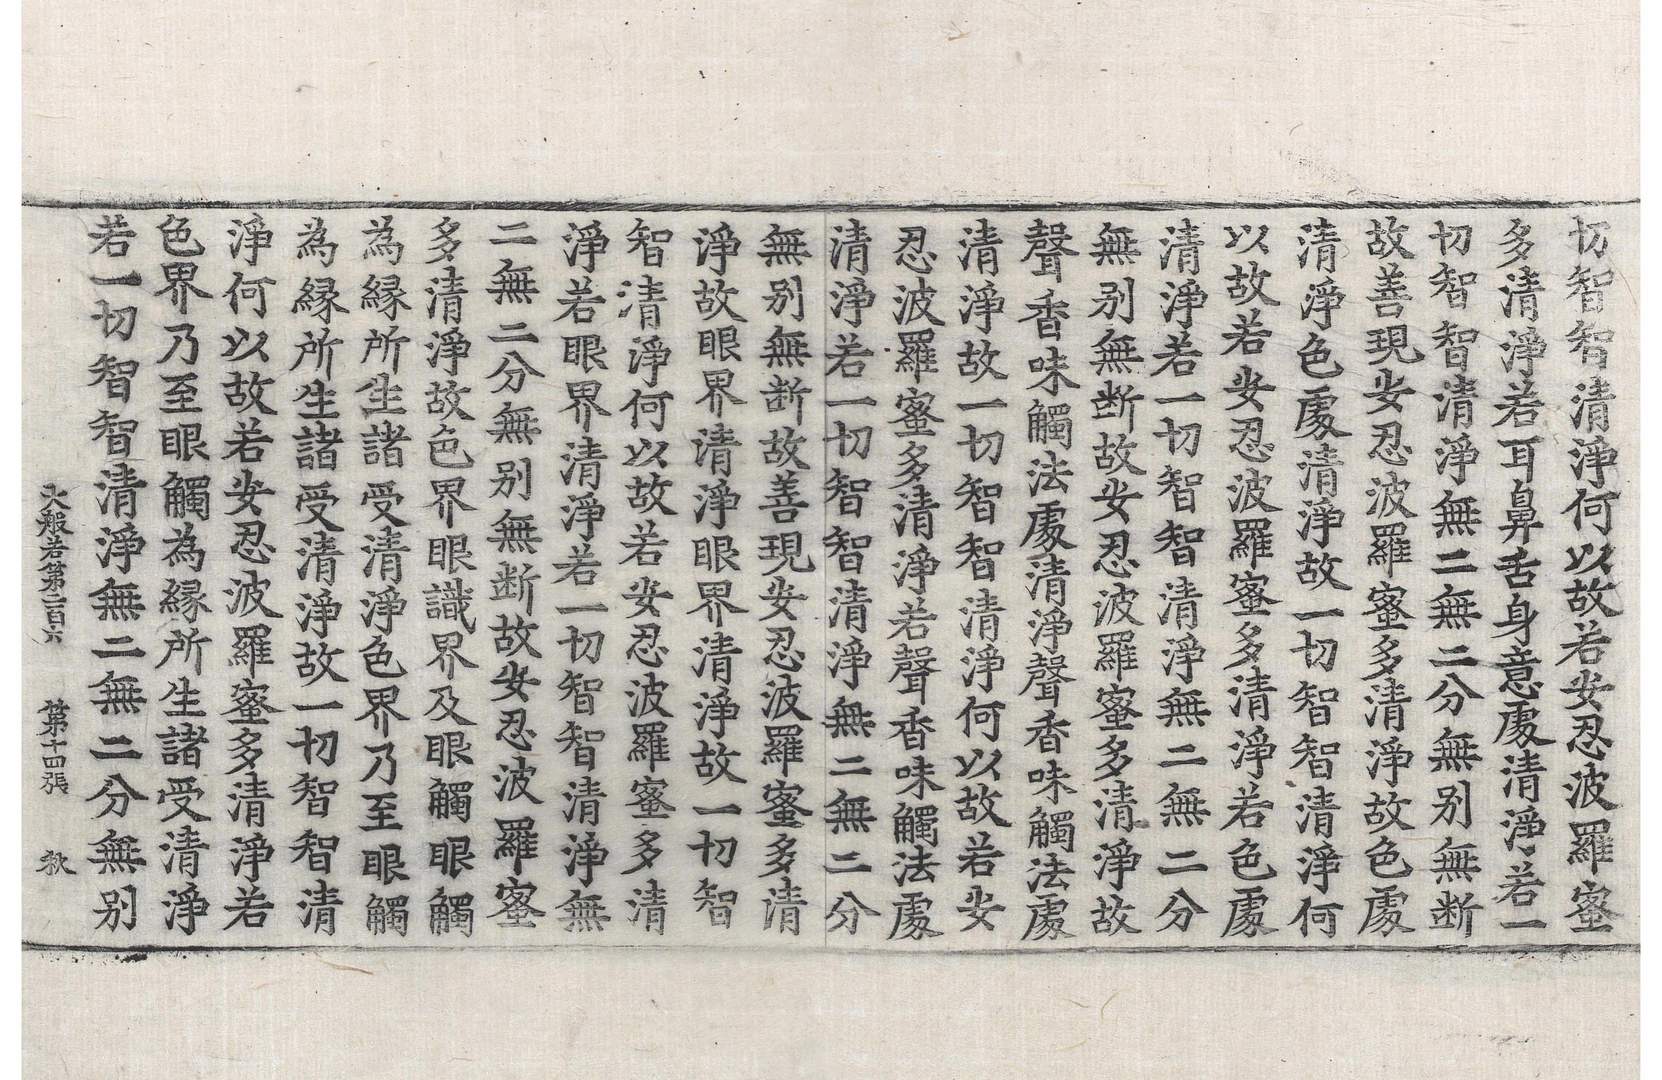 切智智清淨何以故若安忍波羅蜜
多清淨若耳鼻舌身意處清淨若一
切智智清淨無二無二分無別無断
故善現安忍波羅蜜多清淨故色處
清淨色處清淨故一切智智清淨何
以故若安忍波羅蜜多清淨若色處
清淨若一切智智清淨無二無二分
無別無断故安忍波羅蜜多清淨故
聲香味觸法處清淨聲香味觸法處
清淨故一切智智清淨何以故若安
忍波羅蜜多清淨若聲香味觸法處
清淨若一切智智清淨無二無二分
無別無断故善現安忍波羅蜜多清
淨故眼界清淨眼界清淨故一切智
智清淨何以故若安忍波羅蜜多清
淨若眼界清淨若一切智智清淨無
二無二分無別無断故安忍波羅蜜
多清淨故色界眼識界及眼觸眼觸
為縁所生諸受清淨色界乃至眼觸
為縁所生諸受清淨故一切智智清
淨何以故若安忍波羅蜜多清淨若
色界乃至眼觸為縁所生諸受清淨
若一切智智清淨無二無二分無別
大般若第二百六 第十四張 秋